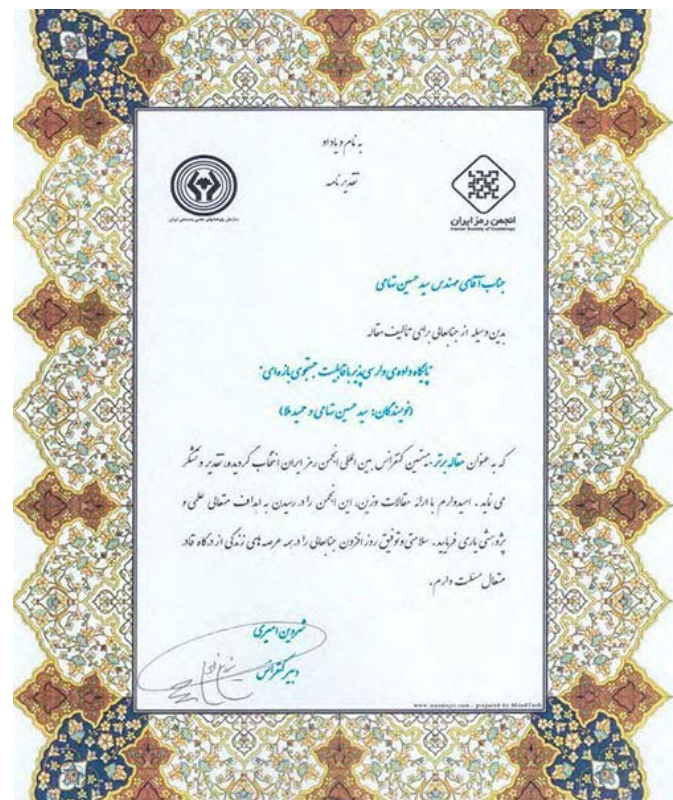 به نام و یاد او
تقدیر نامه
انجمن رمز ایران
Iranian Society of Cryptology
سازمان پژوهشهای علمی و صنعتی ایران
جناب آقای مهندس سید حسین تهامی
بدین وسیله از جنابعالی برای تالیف مقاله
"پایگاه داده‌ی وارسی پذیر با قابلیت جستجوی بازه ای"
(نویسندگان: سید حسین تهامی و حمید ملا)
که به عنوان مقاله برتر، بیستمین کنفرانس بین المللی انجمن رمز ایران انتخاب گردیده، تقدیر و تشکر
می نماید. امیدوارم با ارائه مقالات وزین، این انجمن را در رسیدن به اهداف متعالی علمی و
پژوهشی یاری فرمایید. سلامتی و توفیق روز افزون جنابعالی را در همه عرصه های زندگی از درگاه قادر
متعال مسئلت دارم.
شروین امیری
دبیر کنفرانس